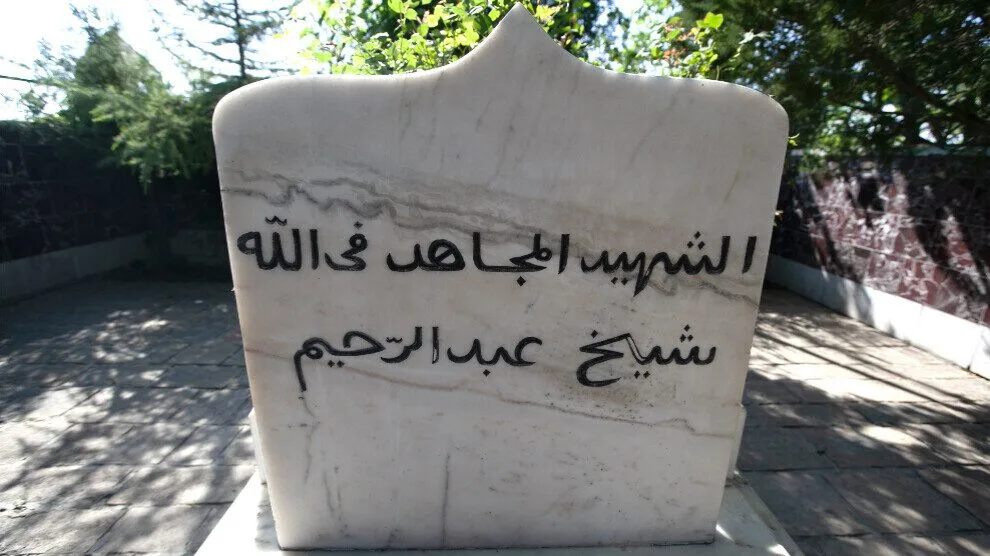 الشهيد المجاهد فى الله
شيخ عبد الرّحيم